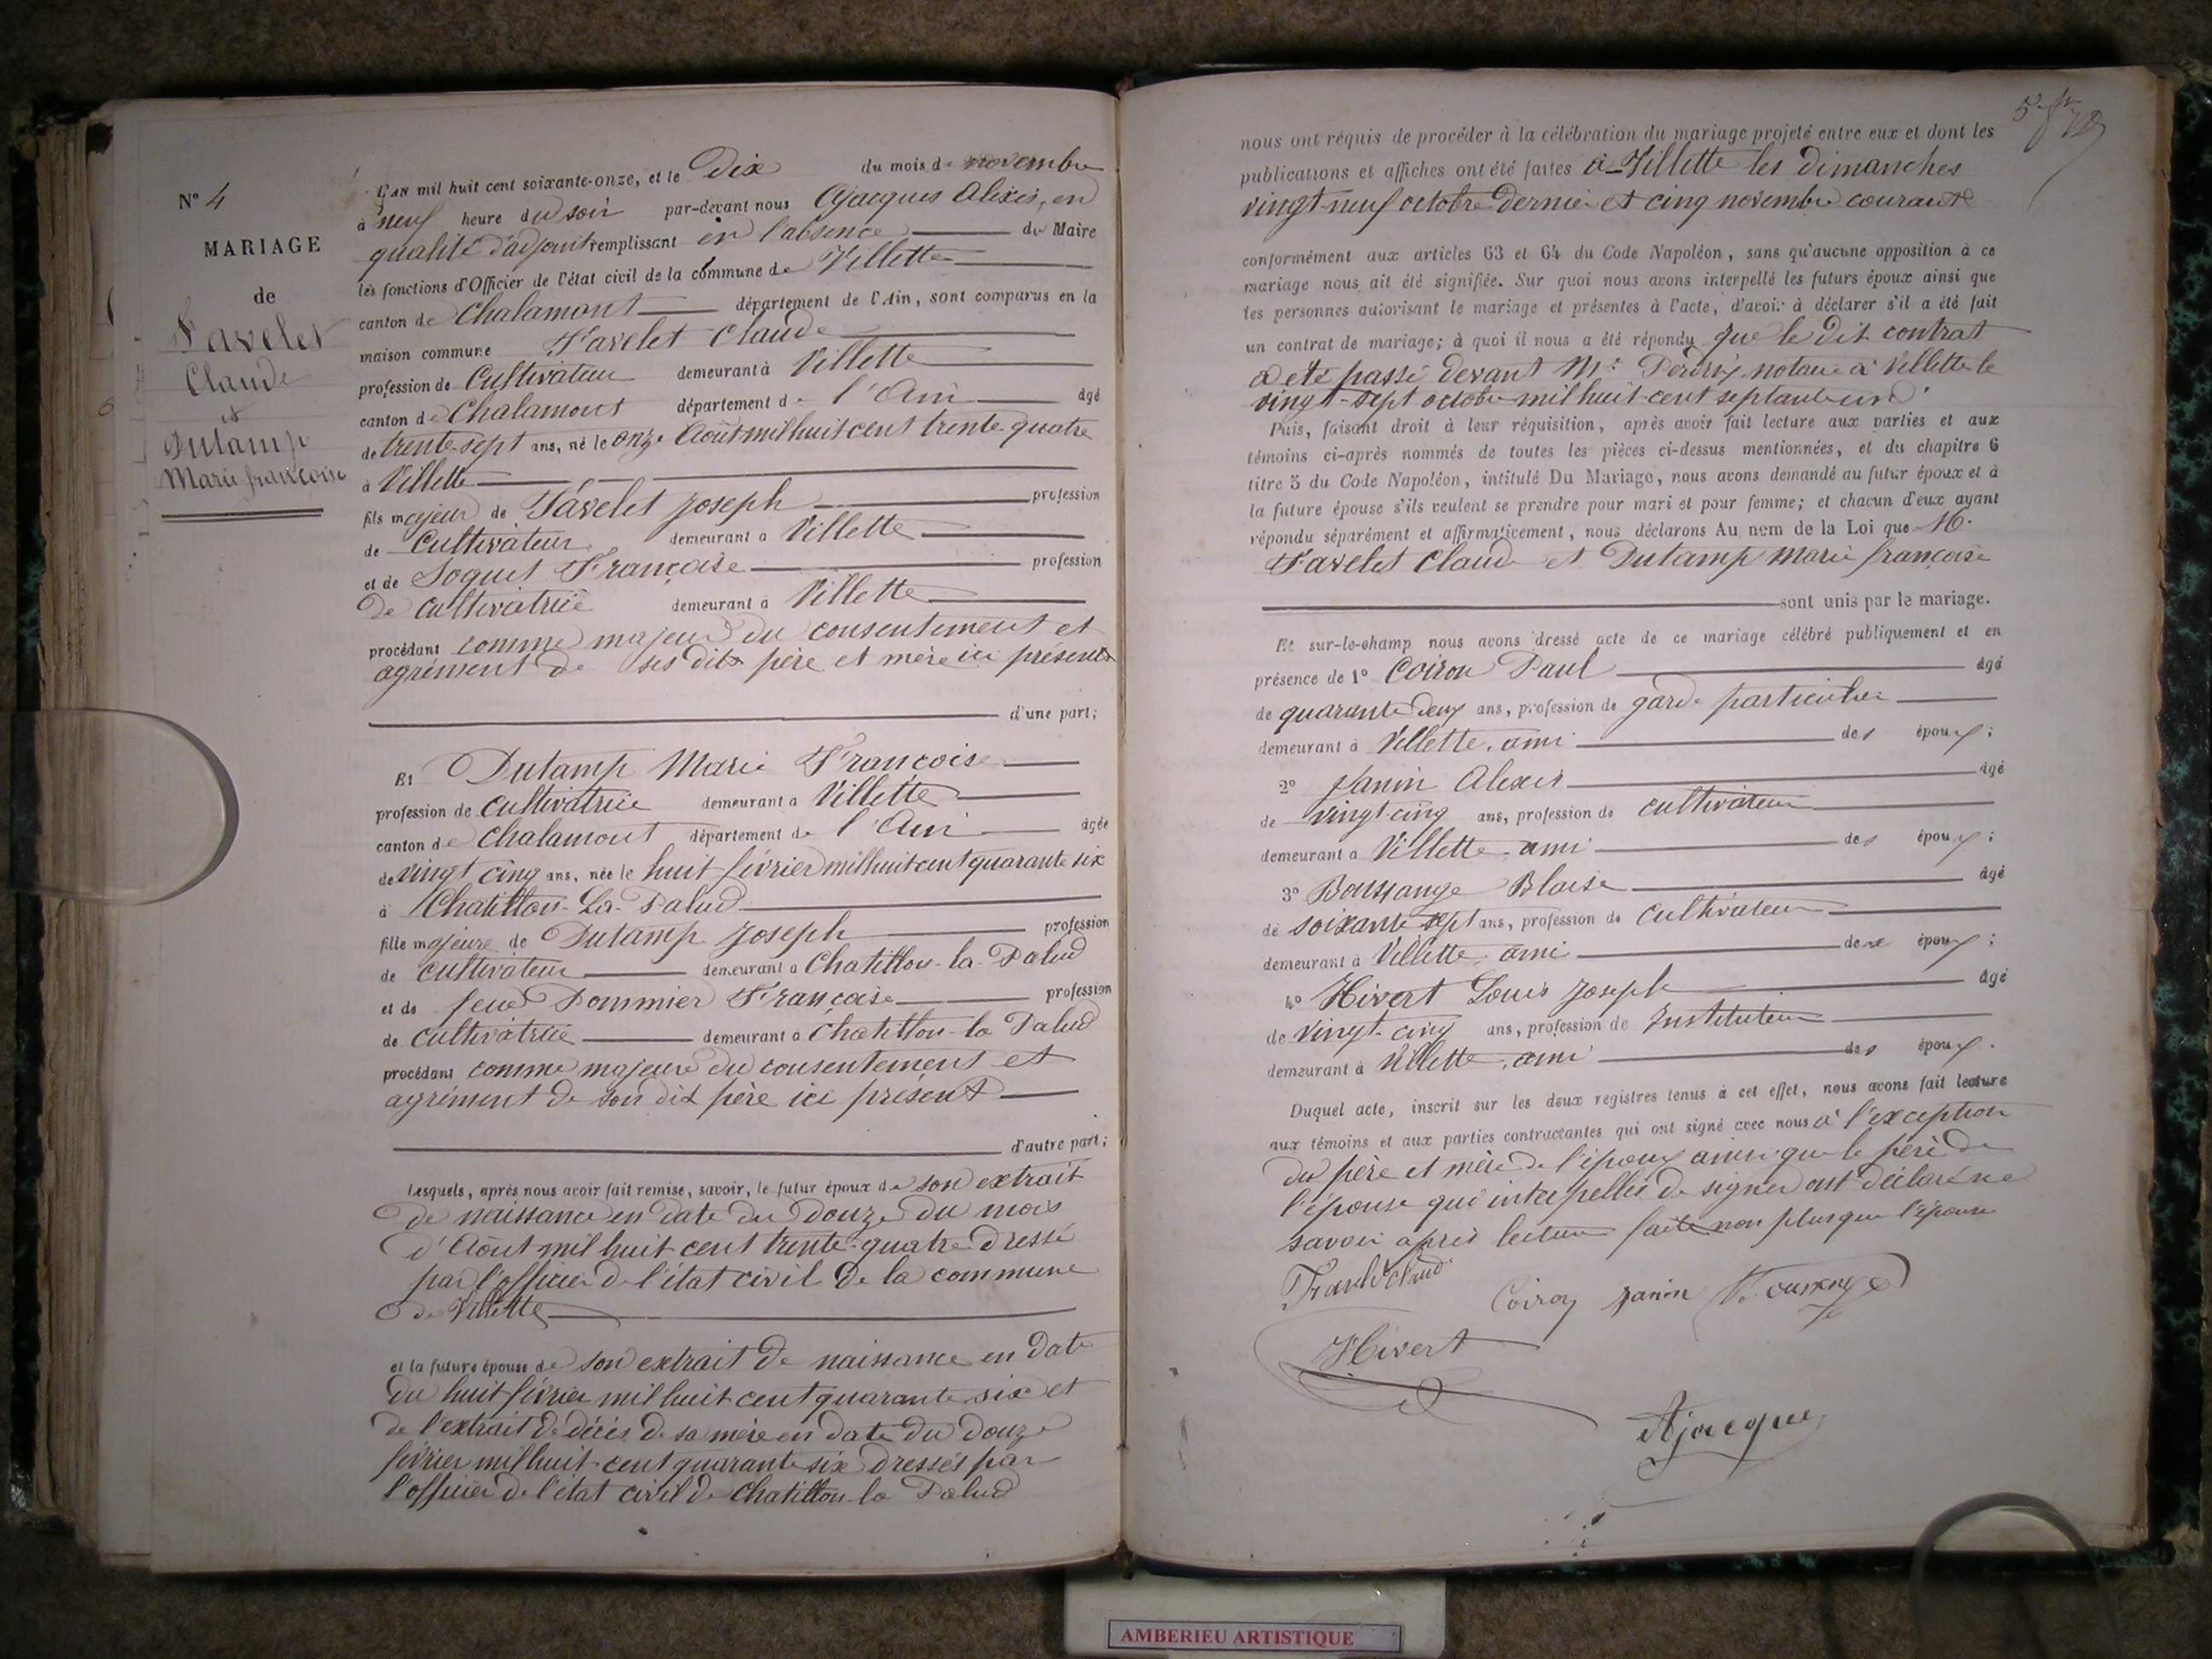 N° 4
MARIAGE
de
Favelet
Claude
et
Dutamp
Marie françoise
L'an mil huit cent soixante-onze, et le Dix du mois de novembre
à neuf heure du soir par-devant nous Ajacques Alexis, en
qualité d'adjoint remplissant en l'absence du Maire
les fonctions d'Officier de l'état civil de la commune de Villette
canton de Chalamont département de l'Ain, sont comparus en la
maison commune Favelet Claude
profession de Cultivateur demeurant à Villette
canton de Chalamont département de l'Ain âgé
de trente-sept ans, né le onze Août mil huit cent trente-quatre
à Villette
fils majeur de Favelet Joseph profession
de Cultivateur demeurant à Villette
et de Soquet Françoise profession
De cultivatrice demeurant à Villette
procédant comme majeur du consentement et
agrément de ses dits père et mère ici présents
d'une part;
Et Dutamp Marie Françoise
profession de cultivatrice demeurant à Villette
canton de Chalamont département de l'Ain âgée
de vingt cinq ans, née le huit février mil huit cent quarante six
à Chatillon-La-Palud
fille majeure de Dutamp Joseph profession
de cultivateur demeurant à Chatillon-la-Palud
et de feue Pommier Françoise profession
de cultivatrice demeurant à Chatillon-la Palud
procédant comme majeure du consentement et
agrément de son dit père ici présent
d'autre part;
Lesquels, après nous avoir fait remise, savoir, le futur époux de son extrait
de naissance en date du Douze du mois
d'Août mil huit cent trente-quatre dressé
par l'officier de l'état civil de la commune
de Villette
et la future épouse de son extrait de naissance en date
du huit février mil huit cent quarante six et
de l'extrait de décès de sa mère en date du douze
février mil huit cent quarante six dressés par
l'officier de l'état civil de Chatillon la Palud
nous ont réquis de procéder à la célébration du mariage projeté entre eux et dont les
publications et affiches ont été faites à Villette les dimanches
vingt-neuf octobre dernier et cinq novembre courant
conformément aux articles 63 et 64 du Code Napoléon, sans qu'aucune opposition à ce
mariage nous ait été signifiée. Sur quoi nous avons interpellé les futurs époux ainsi que
les personnes autorisant le mariage et présentes à l'acte, d'avoir à déclarer s'il a été fait
un contrat de mariage; à quoi il nous a été répondu que le dit contrat
a été passé devant Mr notaire à Villette le
vingt-sept octobre mil huit cent septante un
Puis, faisant droit à leur réquisition, après avoir fait lecture aux parties et aux
témoins ci-après nommés de toutes les pièces ci-dessus mentionnées, et du chapitre 6
titre 5 du Code Napoléon, intitulé Du Mariage, nous avons demandé au futur époux et à
la future épouse s'ils veulent se prendre pour mari et pour femme; et chacun d'eux ayant
répondu séparément et affirmativement, nous déclarons Au nom de la Loi que M.
Favelet Claude et Dutamp Marie françoise
sont unis par le mariage.
Et sur-le-champ nous avons dressé acte de ce mariage célébré publiquement et en
présence de 1° Coiron Paul âgé
de quarante Deux ans, profession de garde particulier
demeurant à Villette, ami des époux;
2° Janin Alexis âgé
de vingt-cinq ans, profession de cultivateur
demeurant à Villette ami des époux;
3° Boussange Blaise âgé
de soixante sept ans, profession de cultivateur
demeurant à Villette, ami des époux;
4° Hivert Louis Joseph âgé
de vingt-cinq ans, profession de Instituteur
demeurant à Villette, ami des époux.
Duquel acte, inscrit sur les deux registres tenus à cet effet, nous avons fait lecture
aux témoins et aux parties contractantes qui ont signé avec nous à l'exception
du père et mère de l'époux ainsi que le père de
l'épouse qui interpellés de signer ont déclaré ne
savoir après lecture faite non plus que l'épouse
Coiron Janin
Hivert
Ajacques
AMBERIEU ARTISTIQUE